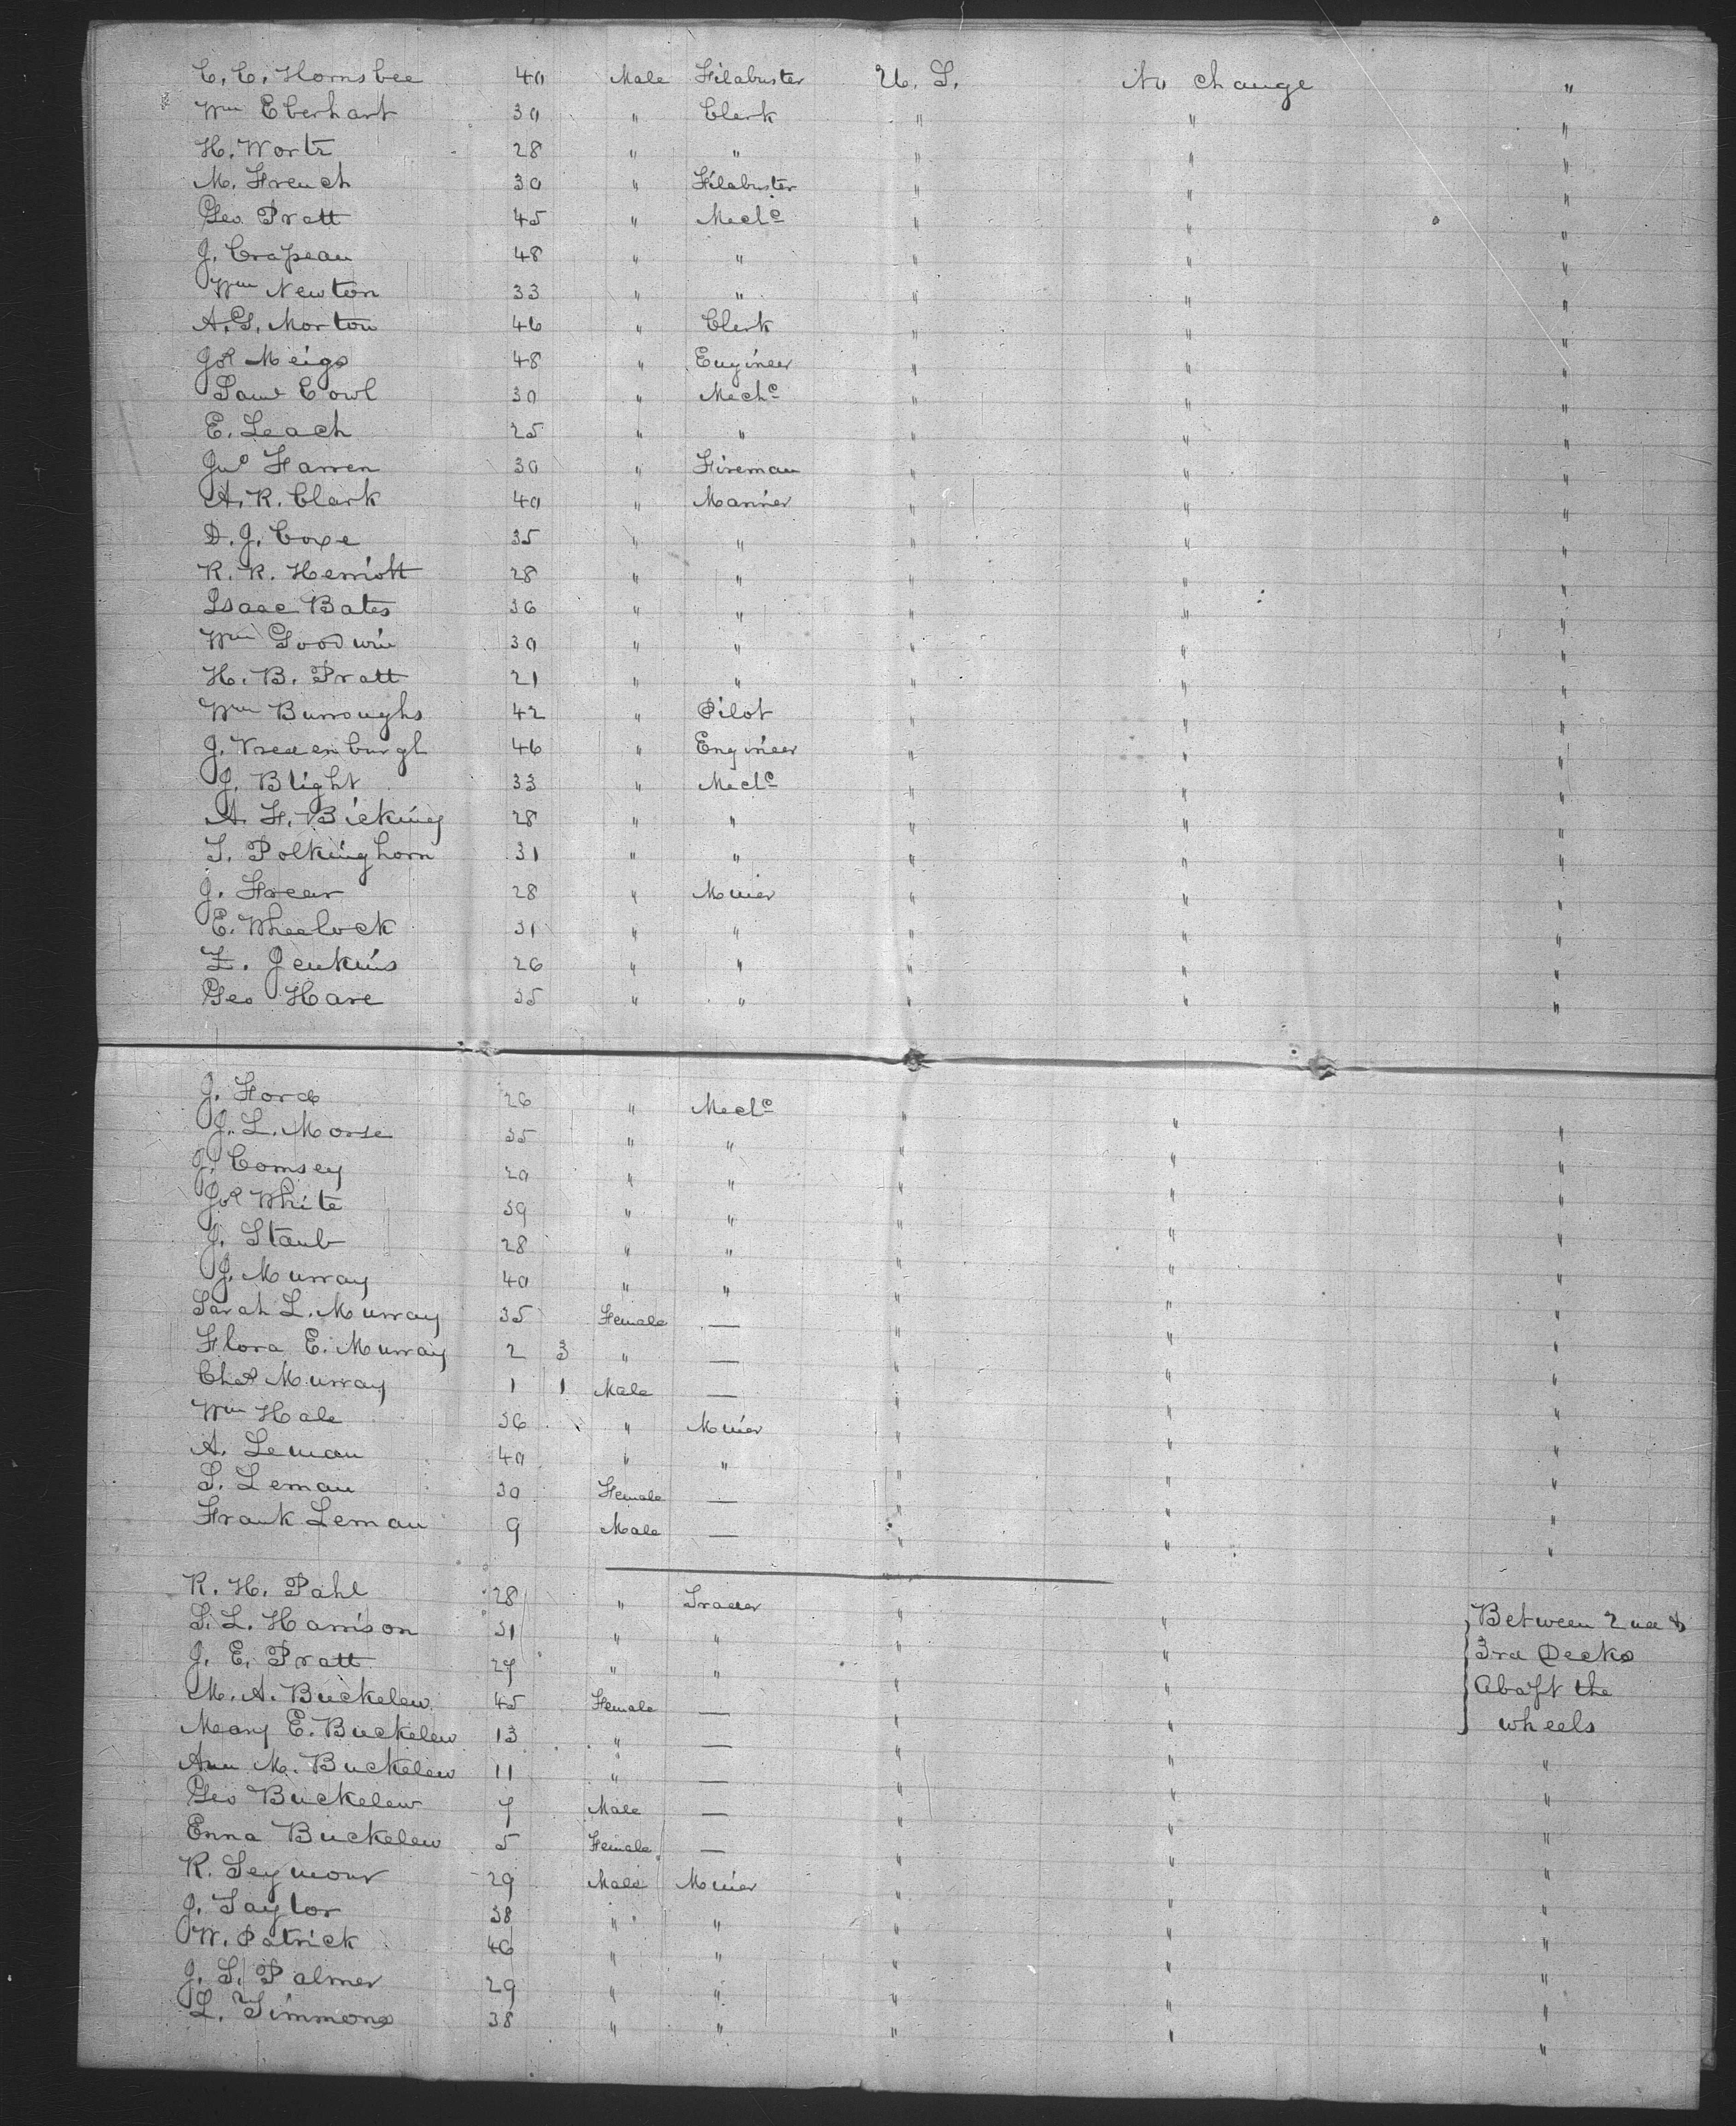 C. C. Hornsbee 40 Male Filabuster U. S. No change "
Wm Eberhart 30 " Clerk " " "
H. Wortz 28 " " " " "
M. French 30 " Filabuster " " "
Geo Pratt 45 " Mechc " " "
J. Crapeau 48 " " " " "
Wm Newton 33 " " " " "
A. G. Morton 46 " Clerk " " "
Jos Meigs 48 " Engineer " " "
Saml Cowl 30 " Mechc " " "
E. Leach 25 " " " " "
Jno Farren 30 " Fireman " " "
A. R. Clark 40 " Mariner " " "
D. J. Coxe 35 " " " " "
R. R. Herriott 28 " " " " "
Isaac Bates 36 " " " " "
Wm Goodwin 30 " " " " "
H. B. Pratt 21 " " " " "
Wm Burroughs 42 " Pilot " " "
J. Vredenburgh 46 " Engineer " " "
J. Blight 33 " Mechc " " "
A. F. Bicking 28 " " " " "
T. Polkinghorn 31 " " " " "
J. 28 " Miner " " "
E. Wheelock 31 " " " " "
Z. Jenkins 26 " " " " "
Geo Hare 35 " " " " "
J. Ford 26 " Mechc " " "
J. L. Morse 35 " " " " "
J. Comsey 20 " " " " "
Jos White 39 " " " " "
J. Staub 28 " " " " "
J. Murray 40 " " " " "
Sarah L. Murray 35 Female — " " "
Flora E. Murray 2 3 " — " " "
Chas Murray 1 1 Male — " " "
Wm Hale 36 " Miner " " "
A. Leman 40 " " " " "
S. Leman 30 Female — " " "
Frank Leman 9 Male — " " "
R. H. Pahl 28 " Trader " " Between 2nd &
S. L. Harrison 31 " " " " 3rd Decks
J. E. Pratt 27 " " " " Abaft the
M. A. Buckelew 45 Female — " " wheels
Mary E. Buckelew 13 " — " " "
Ann M. Buckelew 11 " — " " "
Geo Buckelew 7 Male — " " "
Enna Buckelew 5 Female — " " "
R. Seymour 29 Male Miner " " "
J. Taylor 38 " " " " "
W. Patrick 46 " " " " "
J. S. Palmer 29 " " " " "
L. Timmons 38 " " " " "